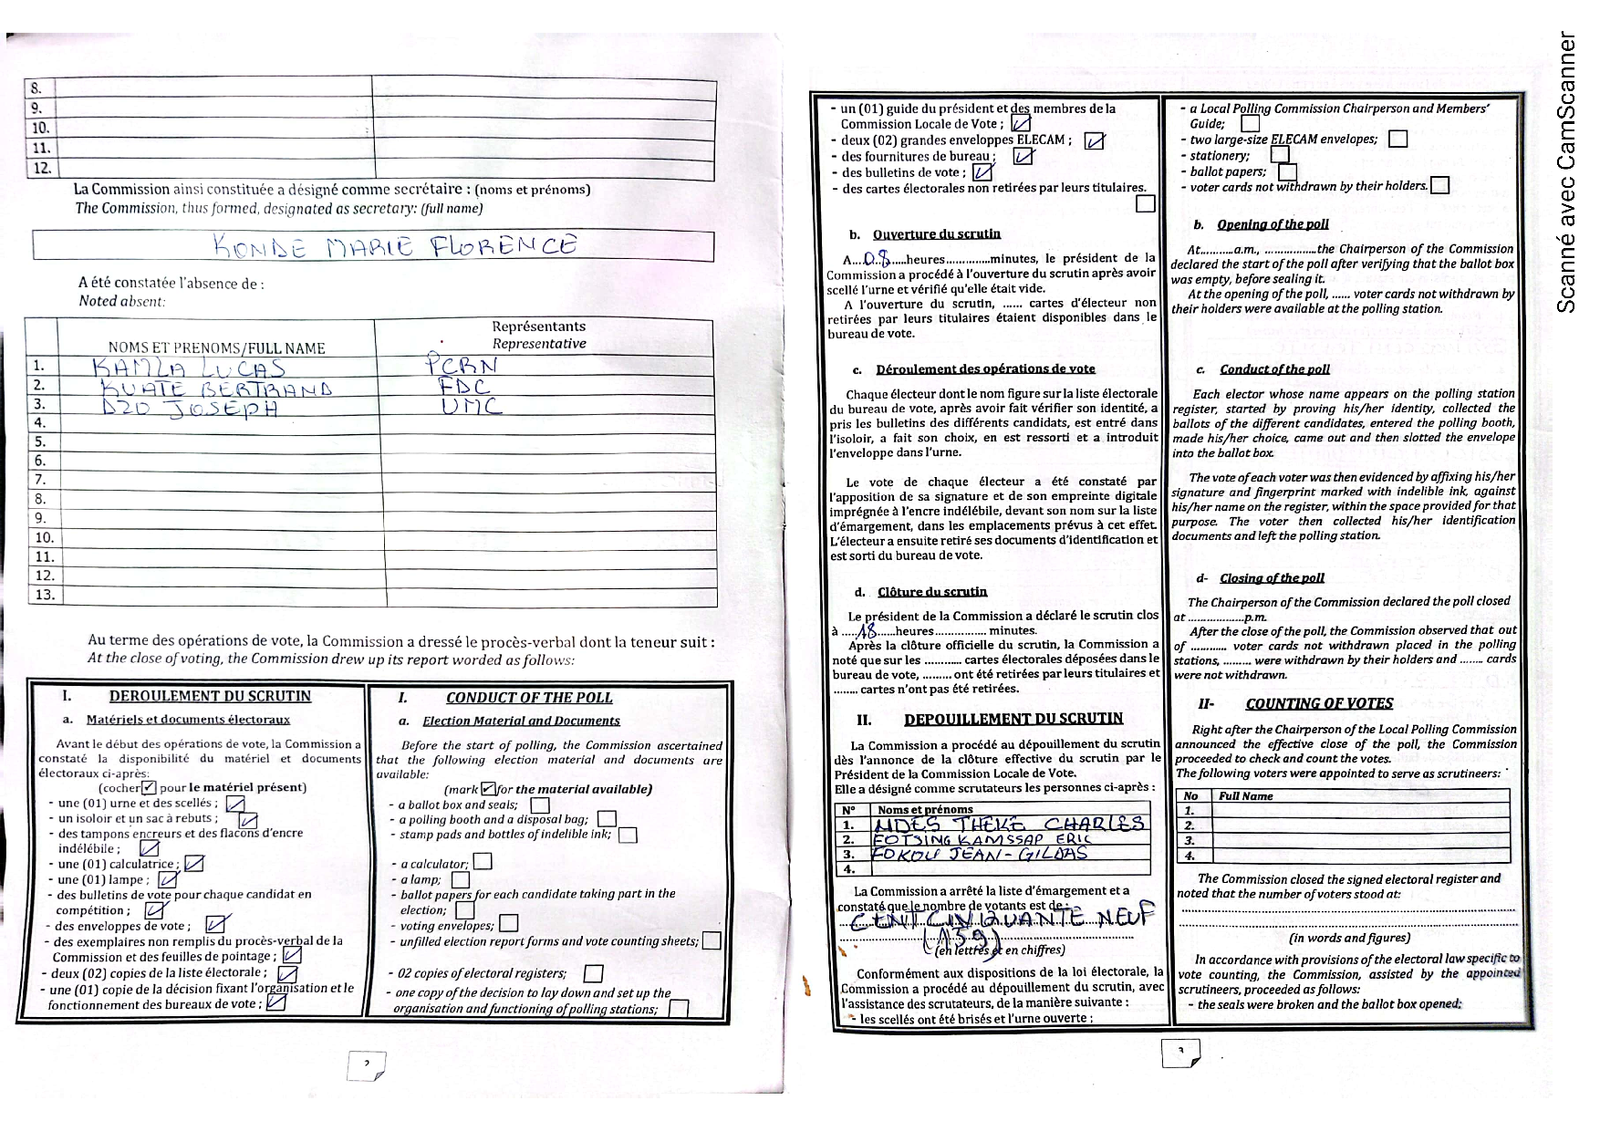 8.
9.
10.
11.
12.
La Commission ainsi constituée a désigné comme secrétaire : (noms et prénoms)
The Commission, thus formed, designated as secretary: (full name)
KONDE MARIE FLORENCE
A été constatée l'absence de :
Noted absent:
NOMS ET PRENOMS/FULL NAME
Représentants
Representative
1. KAMLA LUCAS PCRN
2. KUATE BERTRAND FDC
3. DZO JOSEPH UMC
4.
5.
6.
7.
8.
9.
10.
11.
12.
13.
Au terme des opérations de vote, la Commission a dressé le procès-verbal dont la teneur suit :
At the close of voting, the Commission drew up its report worded as follows:
I. DEROULEMENT DU SCRUTIN
a. Matériels et documents électoraux
Avant le début des opérations de vote, la Commission a
constaté la disponibilité du matériel et documents
électoraux ci-après:
(cocher ✓ pour le matériel présent)
- une (01) urne et des scellés ;
- un isoloir et un sac à rebuts ;
- des tampons encreurs et des flacons d'encre
indélébile ;
- une (01) calculatrice ;
- une (01) lampe ;
- des bulletins de vote pour chaque candidat en
compétition ;
- des enveloppes de vote ;
- des exemplaires non remplis du procès-verbal de la
Commission et des feuilles de pointage ;
- deux (02) copies de la liste électorale ;
- une (01) copie de la décision fixant l'organisation et le
fonctionnement des bureaux de vote ;
I. CONDUCT OF THE POLL
a. Election Material and Documents
Before the start of polling, the Commission ascertained
that the following election material and documents are
available:
(mark ✓ for the material available)
- a ballot box and seals;
- a polling booth and a disposal bag;
- stamp pads and bottles of indelible ink;
- a calculator;
- a lamp;
- ballot papers for each candidate taking part in the
election;
- voting envelopes;
- unfilled election report forms and vote counting sheets;
- 02 copies of electoral registers;
- one copy of the decision to lay down and set up the
organisation and functioning of polling stations;
2
- un (01) guide du président et des membres de la
Commission Locale de Vote ;
- deux (02) grandes enveloppes ELECAM ;
- des fournitures de bureau ;
- des bulletins de vote ;
- des cartes électorales non retirées par leurs titulaires.
b. Ouverture du scrutin
A....08.....heures..............minutes, le président de la
Commission a procédé à l'ouverture du scrutin après avoir
scellé l'urne et vérifié qu'elle était vide.
A l'ouverture du scrutin, ...... cartes d'électeur non
retirées par leurs titulaires étaient disponibles dans le
bureau de vote.
c. Déroulement des opérations de vote
Chaque électeur dont le nom figure sur la liste électorale
du bureau de vote, après avoir fait vérifier son identité, a
pris les bulletins des différents candidats, est entré dans
l'isoloir, a fait son choix, en est ressorti et a introduit
l'enveloppe dans l'urne.
Le vote de chaque électeur a été constaté par
l'apposition de sa signature et de son empreinte digitale
imprégnée à l'encre indélébile, devant son nom sur la liste
d'émargement, dans les emplacements prévus à cet effet.
L'électeur a ensuite retiré ses documents d'identification et
est sorti du bureau de vote.
d. Clôture du scrutin
Le président de la Commission a déclaré le scrutin clos
à .....18.....heures............... minutes.
Après la clôture officielle du scrutin, la Commission a
noté que sur les ........... cartes électorales déposées dans le
bureau de vote, ......... ont été retirées par leurs titulaires et
........ cartes n'ont pas été retirées.
II. DEPOUILLEMENT DU SCRUTIN
La Commission a procédé au dépouillement du scrutin
dès l'annonce de la clôture effective du scrutin par le
Président de la Commission Locale de Vote.
Elle a désigné comme scrutateurs les personnes ci-après :
N° Noms et prénoms
1. NDES THEKE CHARLES
2. FOTSING KAMSSAP ERIC
3. FOKOU JEAN-GILDAS
4.
La Commission a arrêté la liste d'émargement et a
constaté que le nombre de votants est de :
CENT CINQUANTE NEUF
(159)
(en lettres et en chiffres)
Conformément aux dispositions de la loi électorale, la
Commission a procédé au dépouillement du scrutin, avec
l'assistance des scrutateurs, de la manière suivante :
- les scellés ont été brisés et l'urne ouverte ;
- a Local Polling Commission Chairperson and Members'
Guide;
- two large-size ELECAM envelopes;
- stationery;
- ballot papers;
- voter cards not withdrawn by their holders.
b. Opening of the poll
At..........a.m., ................the Chairperson of the Commission
declared the start of the poll after verifying that the ballot box
was empty, before sealing it.
At the opening of the poll, ...... voter cards not withdrawn by
their holders were available at the polling station.
c. Conduct of the poll
Each elector whose name appears on the polling station
register, started by proving his/her identity, collected the
ballots of the different candidates, entered the polling booth,
made his/her choice, came out and then slotted the envelope
into the ballot box.
The vote of each voter was then evidenced by affixing his/her
signature and fingerprint marked with indelible ink, against
his/her name on the register, within the space provided for that
purpose. The voter then collected his/her identification
documents and left the polling station.
d- Closing of the poll
The Chairperson of the Commission declared the poll closed
at ..................p.m.
After the close of the poll, the Commission observed that out
of ........... voter cards not withdrawn placed in the polling
stations, ......... were withdrawn by their holders and ....... cards
were not withdrawn.
II- COUNTING OF VOTES
Right after the Chairperson of the Local Polling Commission
announced the effective close of the poll, the Commission
proceeded to check and count the votes.
The following voters were appointed to serve as scrutineers:
No Full Name
1.
2.
3.
4.
The Commission closed the signed electoral register and
noted that the number of voters stood at:
(in words and figures)
In accordance with provisions of the electoral law specific to
vote counting, the Commission, assisted by the appointed
scrutineers, proceeded as follows:
- the seals were broken and the ballot box opened;
3
Scanné avec CamScanner